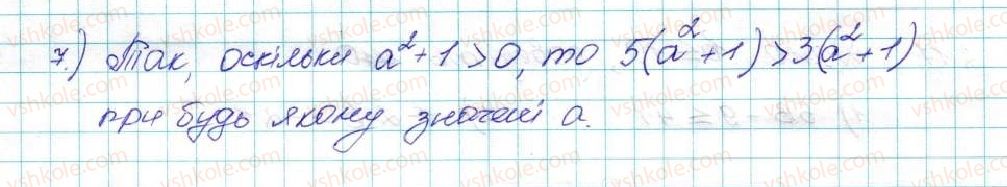 7.) Так, оскільки a²+1>0, то 5(a²+1)>3(a²+1)
при будь якому значені a.